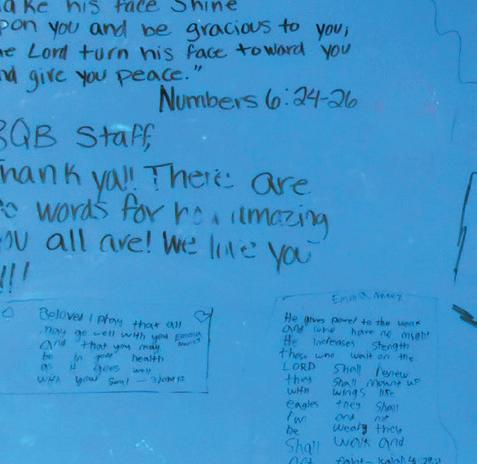 ake his face shine
pon you and be gracious to you;
he Lord turn his face toward you
nd give you peace."
Numbers 6:24-26
BQB Staff,
hank ya!! There are
o words for how amazing
ou all are! We love you
!!!
Beloved I pray that all
may go well with you Emma
and that you may
be in good health
as it goes well
with your soul - 3 John 1:2
Emma
He gives power to the weak
and who have no might
He increases strength
those who wait on the
LORD shall renew
they shall mount up
with wings like
eagles they shall
run and not
be weary they
Shall walk and
not faint - Isaiah 40:29